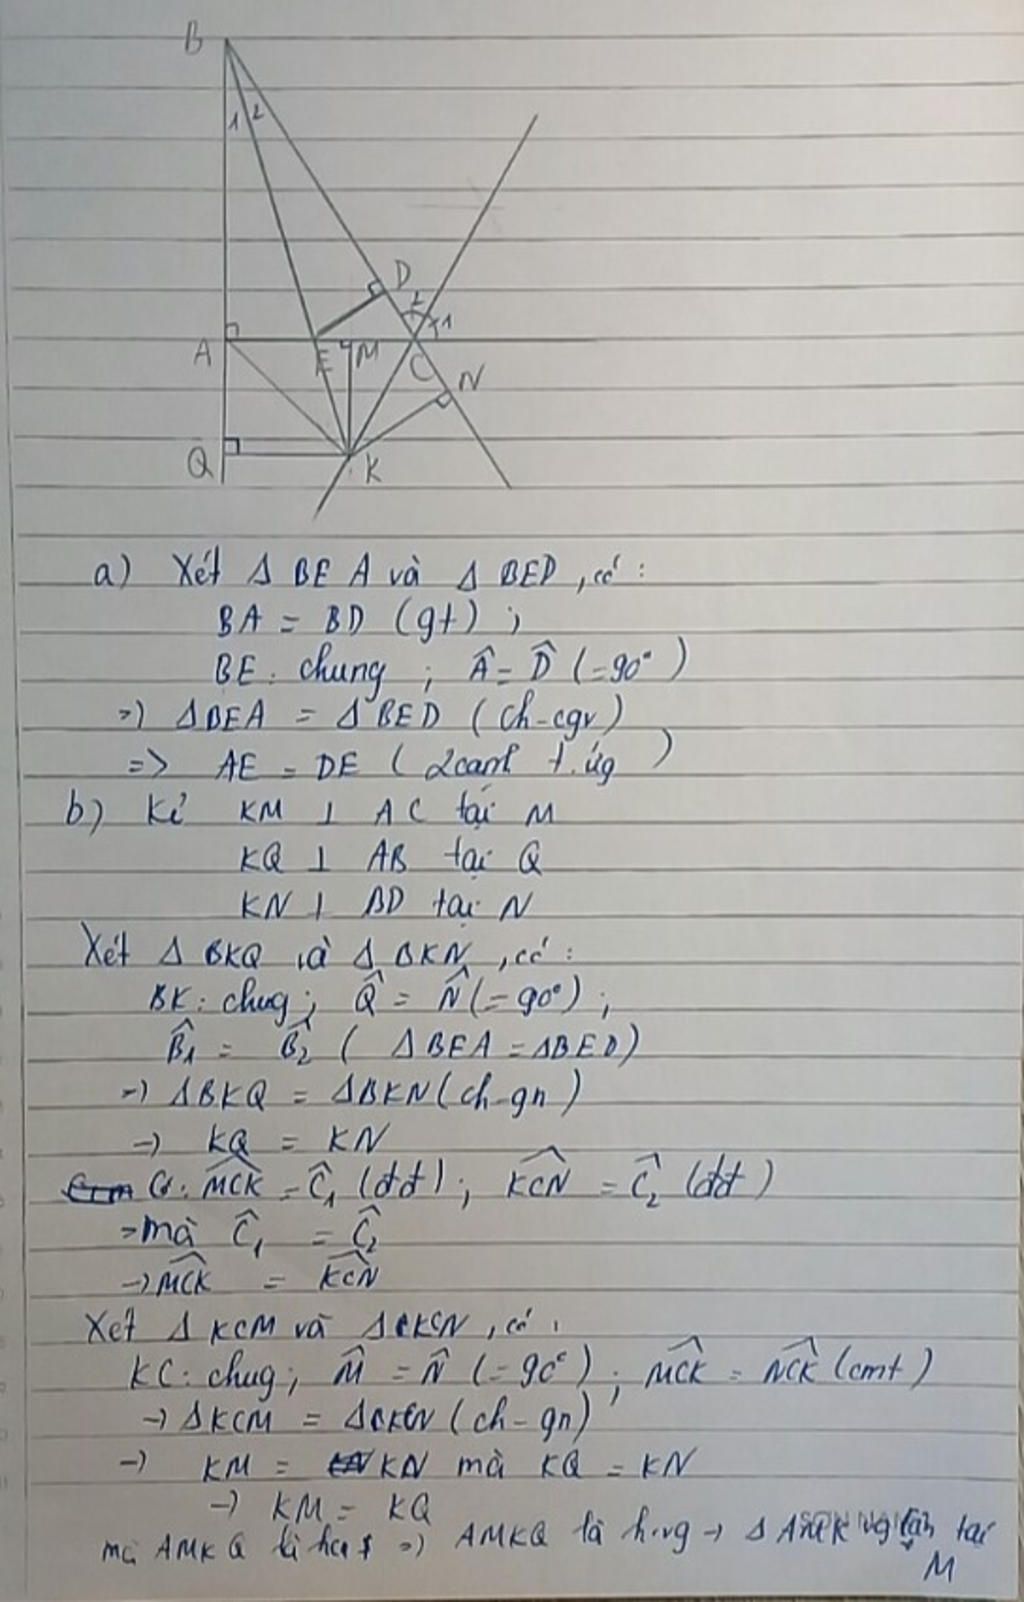 B
1 2
D
2 1
A E M C N
Q K
a) Xét Δ BEA và Δ BED, có:
BA = BD (gt);
BE: chung; Â = D̂ (=90°)
=> ΔBEA = ΔBED (ch-cgv)
=> AE = DE (2 cạnh t.ứg)
b) Kẻ KM ⊥ AC tại M
KQ ⊥ AB tại Q
KN ⊥ BD tại N
Xét Δ BKQ và Δ BKN, có:
BK: chug; Q̂ = N̂ (=90°);
B̂₁ = B̂₂ (ΔBEA = ΔBED)
→ ΔBKQ = ΔBKN (ch-gn)
→ KQ = KN
Có: MCK = Ĉ₁ (đđ); KCN = Ĉ₂ (đđ)
mà Ĉ₁ = Ĉ₂
→ MCK = KCN
Xét Δ KCM và ΔKCN, có:
KC: chug; M̂ = N̂ (=90°); MCK = NCK (cmt)
→ ΔKCM = ΔKCN (ch-gn)
→ KM = KN mà KQ = KN
→ KM = KQ
mà AMKQ là => AMKQ là h.vg → Δ AMK vg cân tại
M